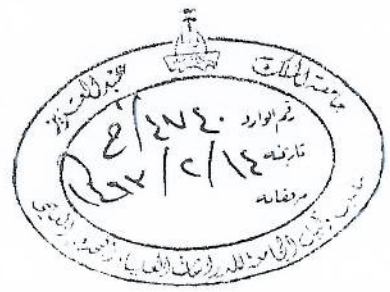 جامعة الملك عبدالعزيز
رقم الوارد
تاريخه ١٤/٢/
مرفقاته
مكتب وكيل الجامعة للدراسات العليا والبحث العلمي